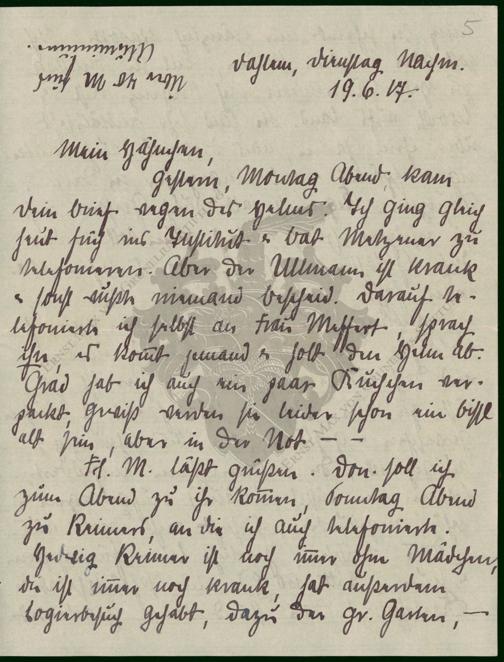 5
Dahlem, Dienstag Nachm.
19.6.17.
Wer 40 M für
Aluminium.
Mein Hähnchen,
Gestern, Montag Abend, kam
Dein Brief wegen des Helms. Ich ging gleich
heut früh ins Institut & bat Metzener zu
telefonieren. Aber der Ullmann ist krank
& sonst wußte niemand bescheid. Darauf te-
lefonierte ich selbst an Frau Meffert, sprach
ihn, es kom̅t jemand & holt den Helm ab.
Grad hab ich auch ein paar Kuchchen ver-
packt, gewiß werden sie leider schon ein bissl
alt sein, aber in der Not — —
Frl. M. läßt grüßen. Don. soll ich
zum Abend zu ihr kom̅en, Sonntag Abend
zu Reimers, an die ich auch telefonierte.
Hedwig Reimer ist noch im̅er ohne Mädchen,
die ist im̅er noch krank, hat außerdem
Logierbesuch gehabt, dazu der gr. Garten, —